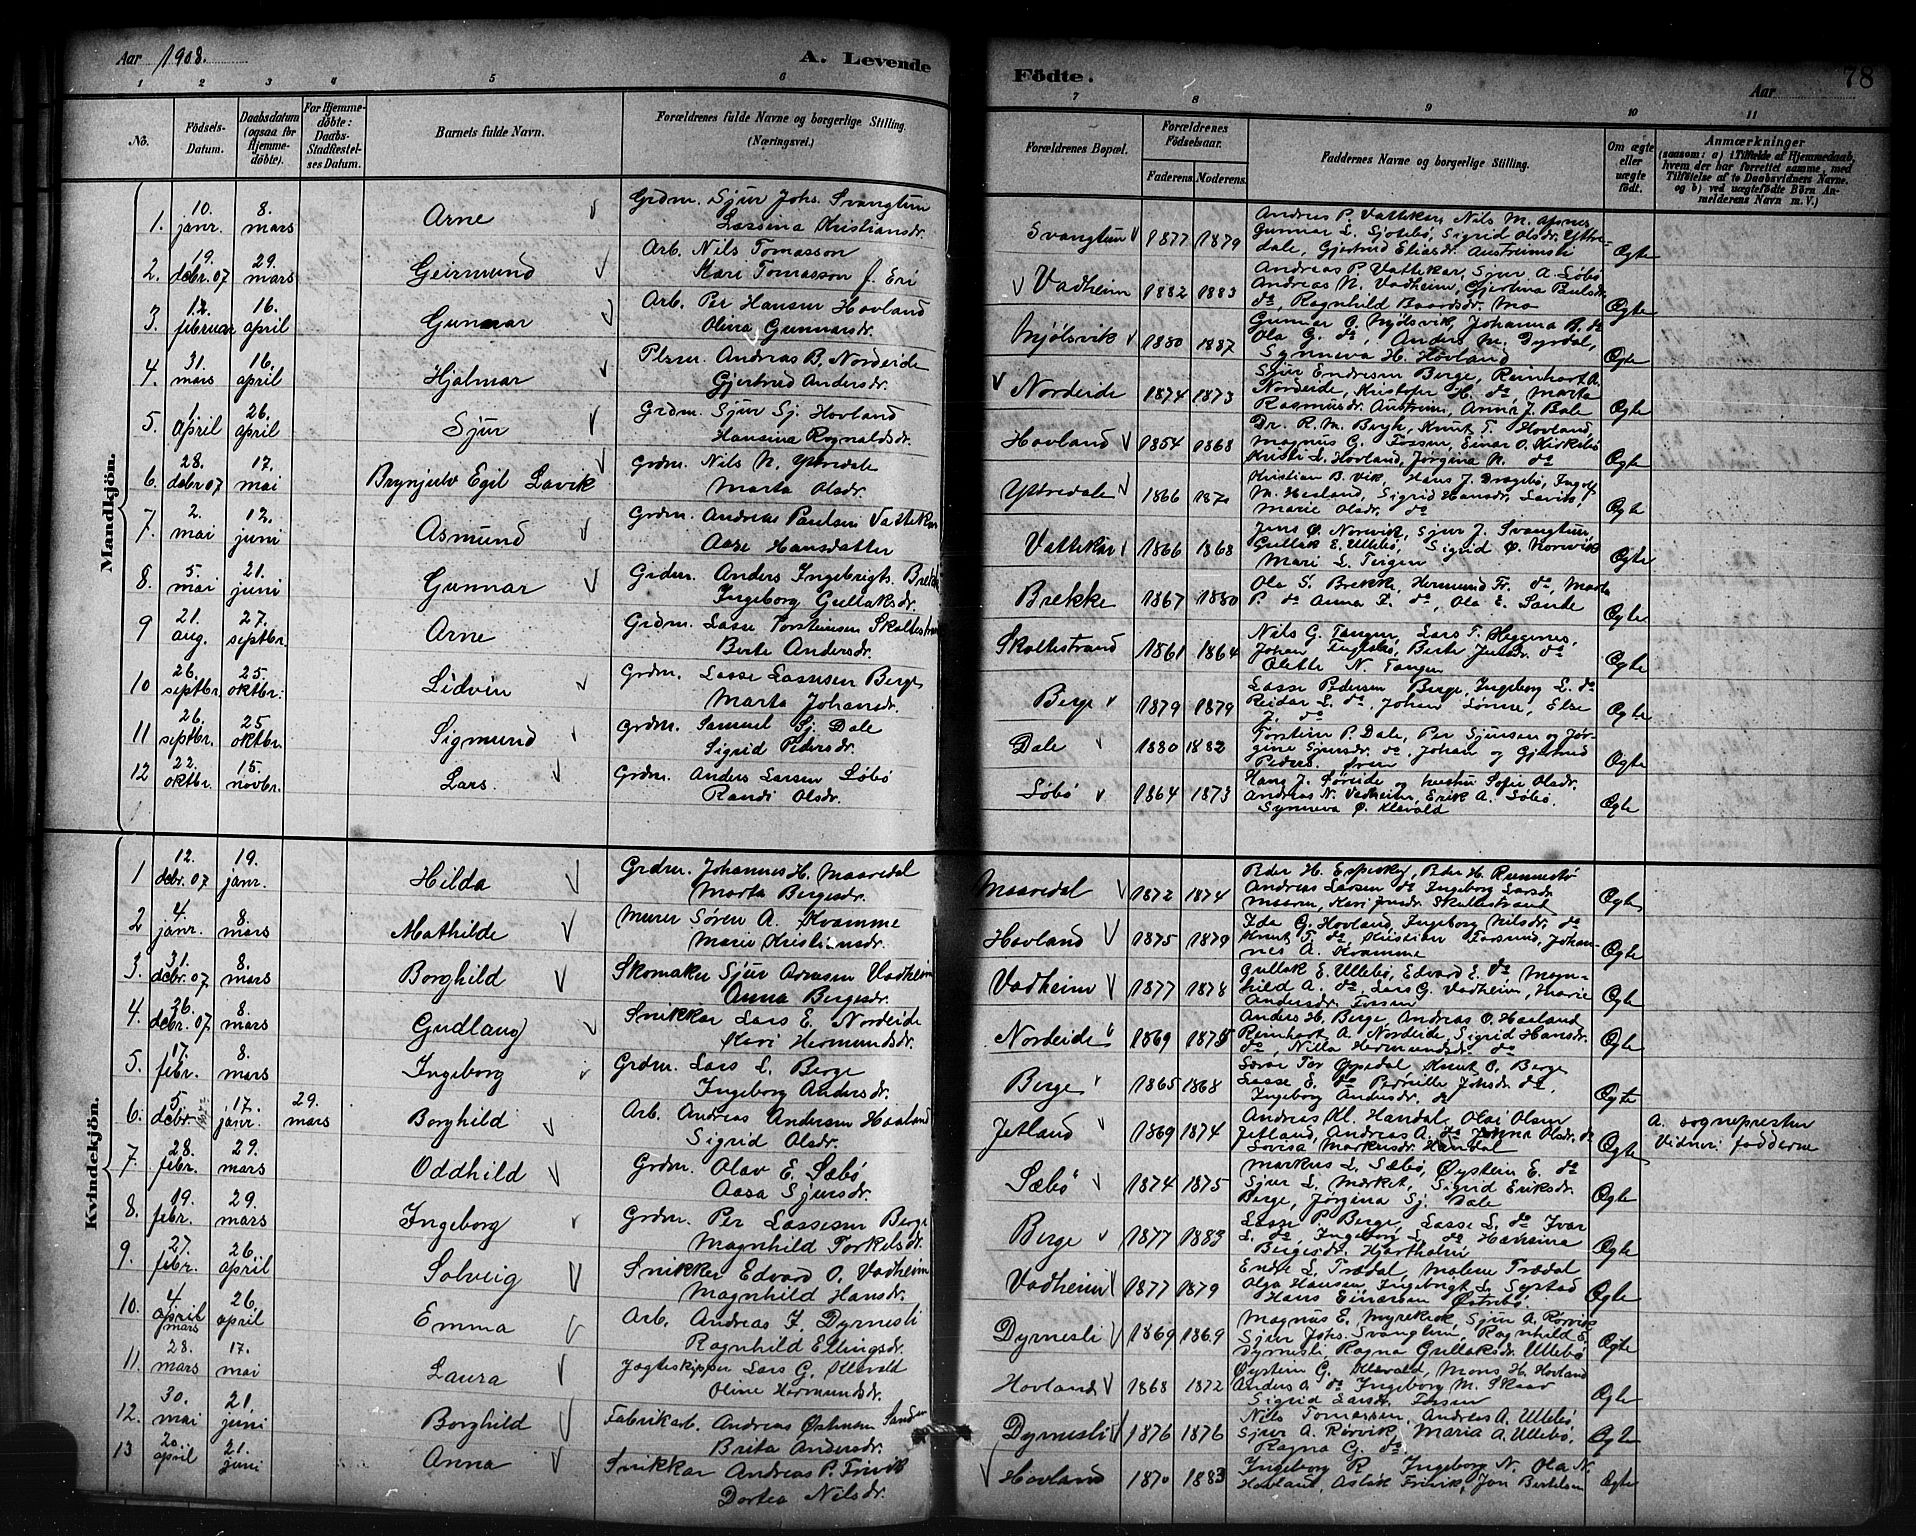 Aar 1908. A. Levende Födte. Aar 78
1 2 3 4 5 6 7 8 9 10 11
No. Födsels-Datum. Daabsdatum (ogsaa for Hjemmedöbte). For Hjemmedöbte: Daabs-Stadfæstelses Datum. Barnets fulde Navn. Forældrenes fulde Navne og borgerlige Stilling. (Næringsvei.) Forældrenes Bopæl. Forældrenes Födselsaar. Faderens. Moderens. Faddernes Navne og borgerlige Stilling. Om ægte eller uægte födt. Anmærkninger (saasom: a) i Tilfælde af Hjemmedaab, hvem der har forrettet samme, med Tilföielse af to Daabsvidners Navne. og b) ved uægtefödte Börn Anmelderens Navn m. V.)
Mandkjön.
1. 10. janr. 8. mars Arne Grdm. Sjur Johs. Svangtun Lassina Kristiansdr. Svangtun 1877 1879 Andreas P. Vattekar, Nils M.
Gunnar L. Sjötebö, Sigrid Olsdr. Yttre-
dale, Gjertrud Eliasdr. Austrheim Ægte
2. 19. debr. 07 29. mars Geirmund Arb. Nils Tomasson Mari Tomasson f. Eri Vadheim 1882 1883 Andreas P. Vattekar, Sjur A. Löbö
Andreas N. Vadheim, Gjertina Paulsdr.
do, Ragnhild Baardsdr. Mo Ægte
3. 12. februar 16. april Gunnar Arb. Per Hansen Hovland Olina Gunnarsdr. Njölsvik 1880 1887 Gunnar O. Njölsvik, Johanna B. do
Ola G. do, Anders M. Dyrdal,
Synneva H. Hovland Ægte
4. 31. mars 16. april Hjalmar Plsm. Andreas B. Nordeide Gjertrud Andersdr. Nordeide 1874 1873 Sjur Endresen Berge, Reinhart A.
Nordeide, Kristofer H. do, Marta
Rasmusdr. Austrheim, Anna J. Dale Ægte
5. 1 april 26. april Sjur Grdm. Sjur Sj. Hovland Hansina Rognaldsdr. Hovland 1854 1868 Dr. R. M. Bergh, Knut T. Hovland,
Magnus G. Fossen, Einar O. Kirkebö
Kristi L. Hovland, Jörgina N. do Ægte
6. 28. debr 07 17. mai Brynjulv Egil Lavik Grdm. Nils N. Ytredale Marta Olsdr. Ytredale 1866 1870 Kristian B. Vik, Hans J. Dragebö, Ingolf
M. Hesland, Sigrid Hansdr. Lavik,
Marie Olsdr. do Ægte
7. 2. mai 12. juni Asmund Grdm. Andreas Paulsen Vattekar Aase Hansdatter Vattekar 1866 1868 Jens Ö. Norevik, Sjur J. Svangtun,
Gullak E. Ullebö, Sigrid Ö. Norevik
Mari L. Tergen Ægte
8. 5. mai 21. juni Gunnar Grdm. Anders Ingebrigts. Brekke Ingeborg Gullaksdr. Brekke 1867 1880 Ola S. Brekke, Hermund Fr. do Marta
P. do Anna I. do, Ola E. Sande Ægte
9 21. aug. 27. septbr. Arne Grdm. Lasse Torsteinsen Skaltestrand Berte Andersdr. Skaltestrand 1861 1864 Nils G. Tangen, Lars T. Heggenes,
Johan Berte Jensdr. do
Olette N. Tangen Ægte
10 26. septbr. 25. oktbr. Lidvin Grdm. Lasse Lassesen Berge Marta Johansdr. Berge 1879 1879 Lasse Pedersen Berge, Ingeborg L. do
Reidar L. do, Johan Lönne, Else
J. do Ægte
11 26. septbr. 25 oktbr. Sigmund Grdm. Samuel Sj. Dale Sigrid Pedersdr. Dale 1880 1882 Torstein P. Dale, Per Sjursen og Jör-
gine Sjursdr. do, Johan og Gjertrud
Peders. Ören Ægte
12 22. oktbr. 15. novbr. Lars Grdm. Anders Larsen Löbö Randi Olsdr. Löbö 1864 1873 Hans J. Söreide og hustru Sofie Olsdr.
Andreas N. Vadheim, Erik A. Löbö
Synneva Ö. Klævold Ægte
Kvindekjön.
1 12. debr. 07 19. janr. Hilda Grdm. Johannes H. Maaredal Marta Bergesdr. Maaredal 1872 1874 Peder H. Espeskog, Peder H. Runnestö
Andreas Larsen do Ingeborg Larsdr.
Maaren, Kari Jensdr. Skaltestrand Ægte
2 4 janr. 8. mars Mathilde Murer Sören A. Kvamme Marie Kristiansdr. Hovland 1875 1879 Ida G. Hovland, Ingeborg Nilsdr. do
Knut T. do, Kristian Johan-
nes A. Kvamme Ægte
3. 31. debr. 07 8. mars Borghild Skomaker Sjur Arnesen Vadheim Anna Bergesdr. Vadheim 1877 1878 Gullak E. Ullebö, Edvard E. do Magn-
hild A. do, Lars G. Vadheim, Marie
Andersdr. Fossen Ægte
4. 26. debr. 07 8. mars Gudlaug Snikkar Lars E. Nordeide Kari Hermundsdr. Nordeide 1869 1875 Anders H. Berge, Andreas O. Haaland
Reinhart A. Nordeide, Sigrid Hansdr.
do, Nilla Hermundsdr. do Ægte
5 17 febr. 8. mars Ingeborg Grdm. Lars L. Berge Ingeborg Andersdr. Berge 1865 1868 Lærar Tor Oppedal Knut O. Berge
Lasse E. do Pernille Johsdr. do,
Ingeborg Andersdr. do Ægte
6. 5 debr. 1907 17. janr. 29. mars Borghild Arb. Andreas Andersen Haaland Sigrid Olsdr. Jetland 1869 1874 Andreas Kl. Handal, Olai Olsen
Jetland, Andreas A. do Anna Olsdr. do
Lovisa Markusdr. Handal Ægte A. sogneprester
Vidner: fadderne
7. 28. febr. 29. mars Oddhild Grdm. Olav E. Sæbö Aasa Sjursdr. Sæbö 1874 1875 Markus L. Sæbö, Öystein E. do
Sjur L. Mærket, Sigrid Eriksdr.
Berge, Jörgina Sj. Dale Ægte
8. 19. febr. 29. mars Ingeborg Grdm. Per Lassesen Berge Magnhild Torkelsdr. Berge 1877 1883 Lasse P. Berge, Lasse L. do Ivar
L. do, Ingeborg L. do Hansina
Bergesdr. Hjartholm Ægte
9. 27 febr. 26. april Solveig Snikker Edvard O. Vadheim Magnhild Hansdr. Vadheim 1877 1879 Endre L. Trædal, Malene Trædal
Olga Hansen, Ingebrigt L. Systad
Hans Einarsen Östrebö Ægte
10. 4 april mars 26. april Emma Arb. Andreas I. Dyrnesli Ragnhild Ellingsdr. Dyrnesli 1869 1869 Magnus E. Myrekrok, Sjur A. Rörvik
Sjur Johs. Svangtun, Ragnhild E.
Dyrnesli Ragna Gullaksdr. Ullebö Ægte
11. 28. mars 17. mai Laura Jagteskipper Lars G. Klævold Oline Hermundsdr. Hovland 1868 1872 Öystein G. Klævold, Mons H. Hovland
Anders A. do Ingeborg M. Skaar
Sigrid Larsdr. Fossen Ægte
12. 30. mai 21. juni Borghild Fabrikarb. Andreas Östmoen Brita Andersdr. Dyrnesli 1876 1876 Nils Tomassen, Andreas A. Ullebö,
Sjur A. Rörvik, Maria A. Ullebö,
Ragna G. do. Ægte
13 20. april 21. juni Anna Snikkar Andreas P. Frivik Dortea Nilsdr. Hovland 1870 1883 Ingeborg R. Ingeborg N. Ola N.
Hovland, Aslak Frivik, Jon Bertelsen Ægte